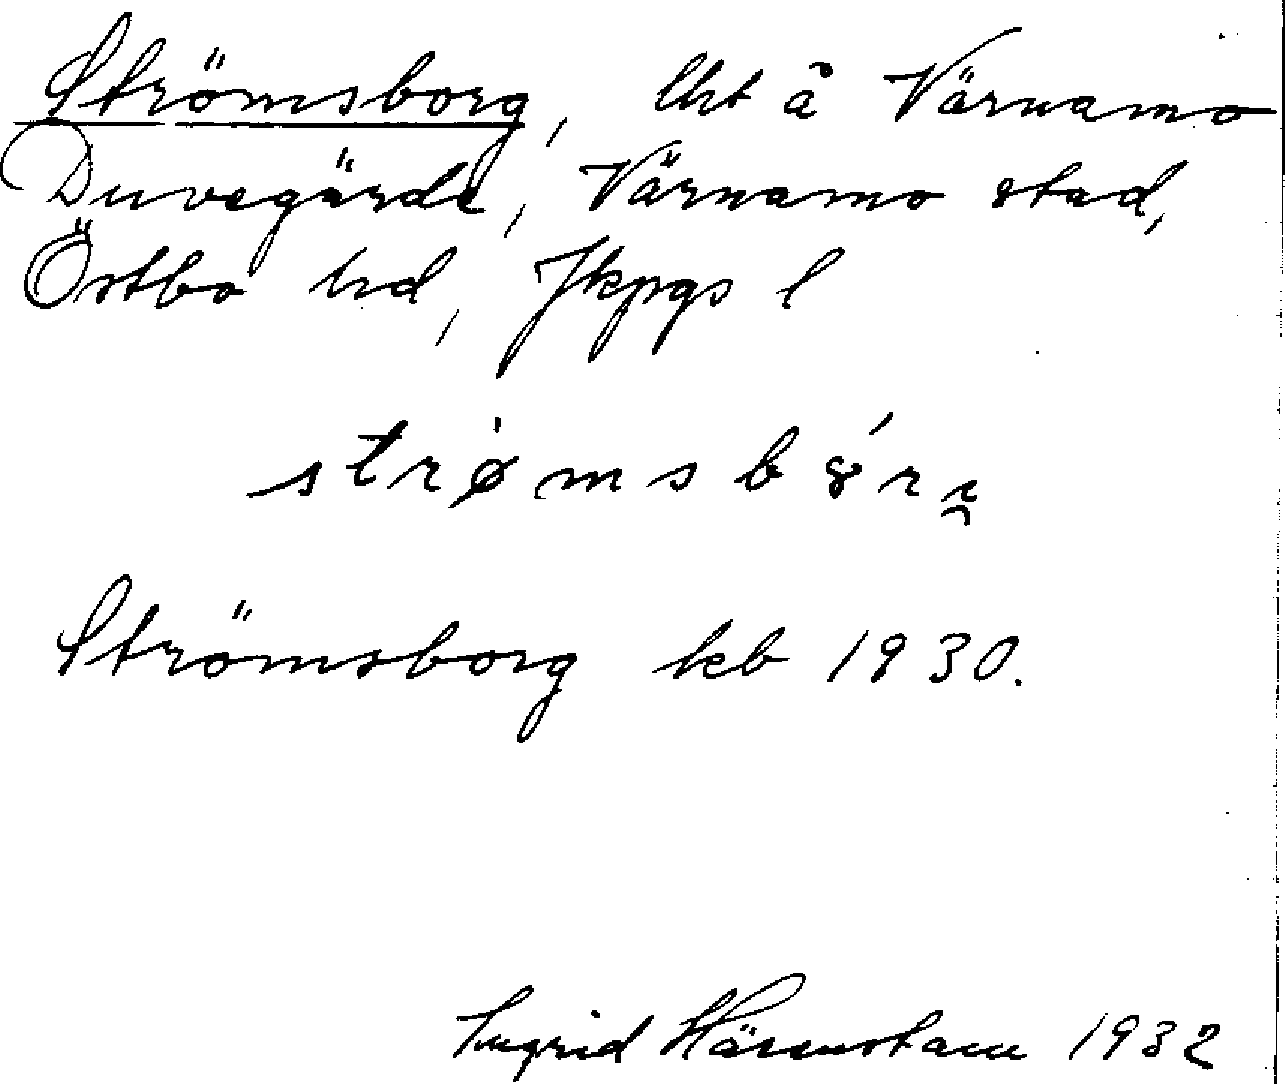 Strömsborg, lht å Värnamo
Duvegärde, Värnamo stad,
Östbo hd, Jkpgs l
strø̀msbór
Strömsborg kb 1930.
Ingrid Härenstam 1932